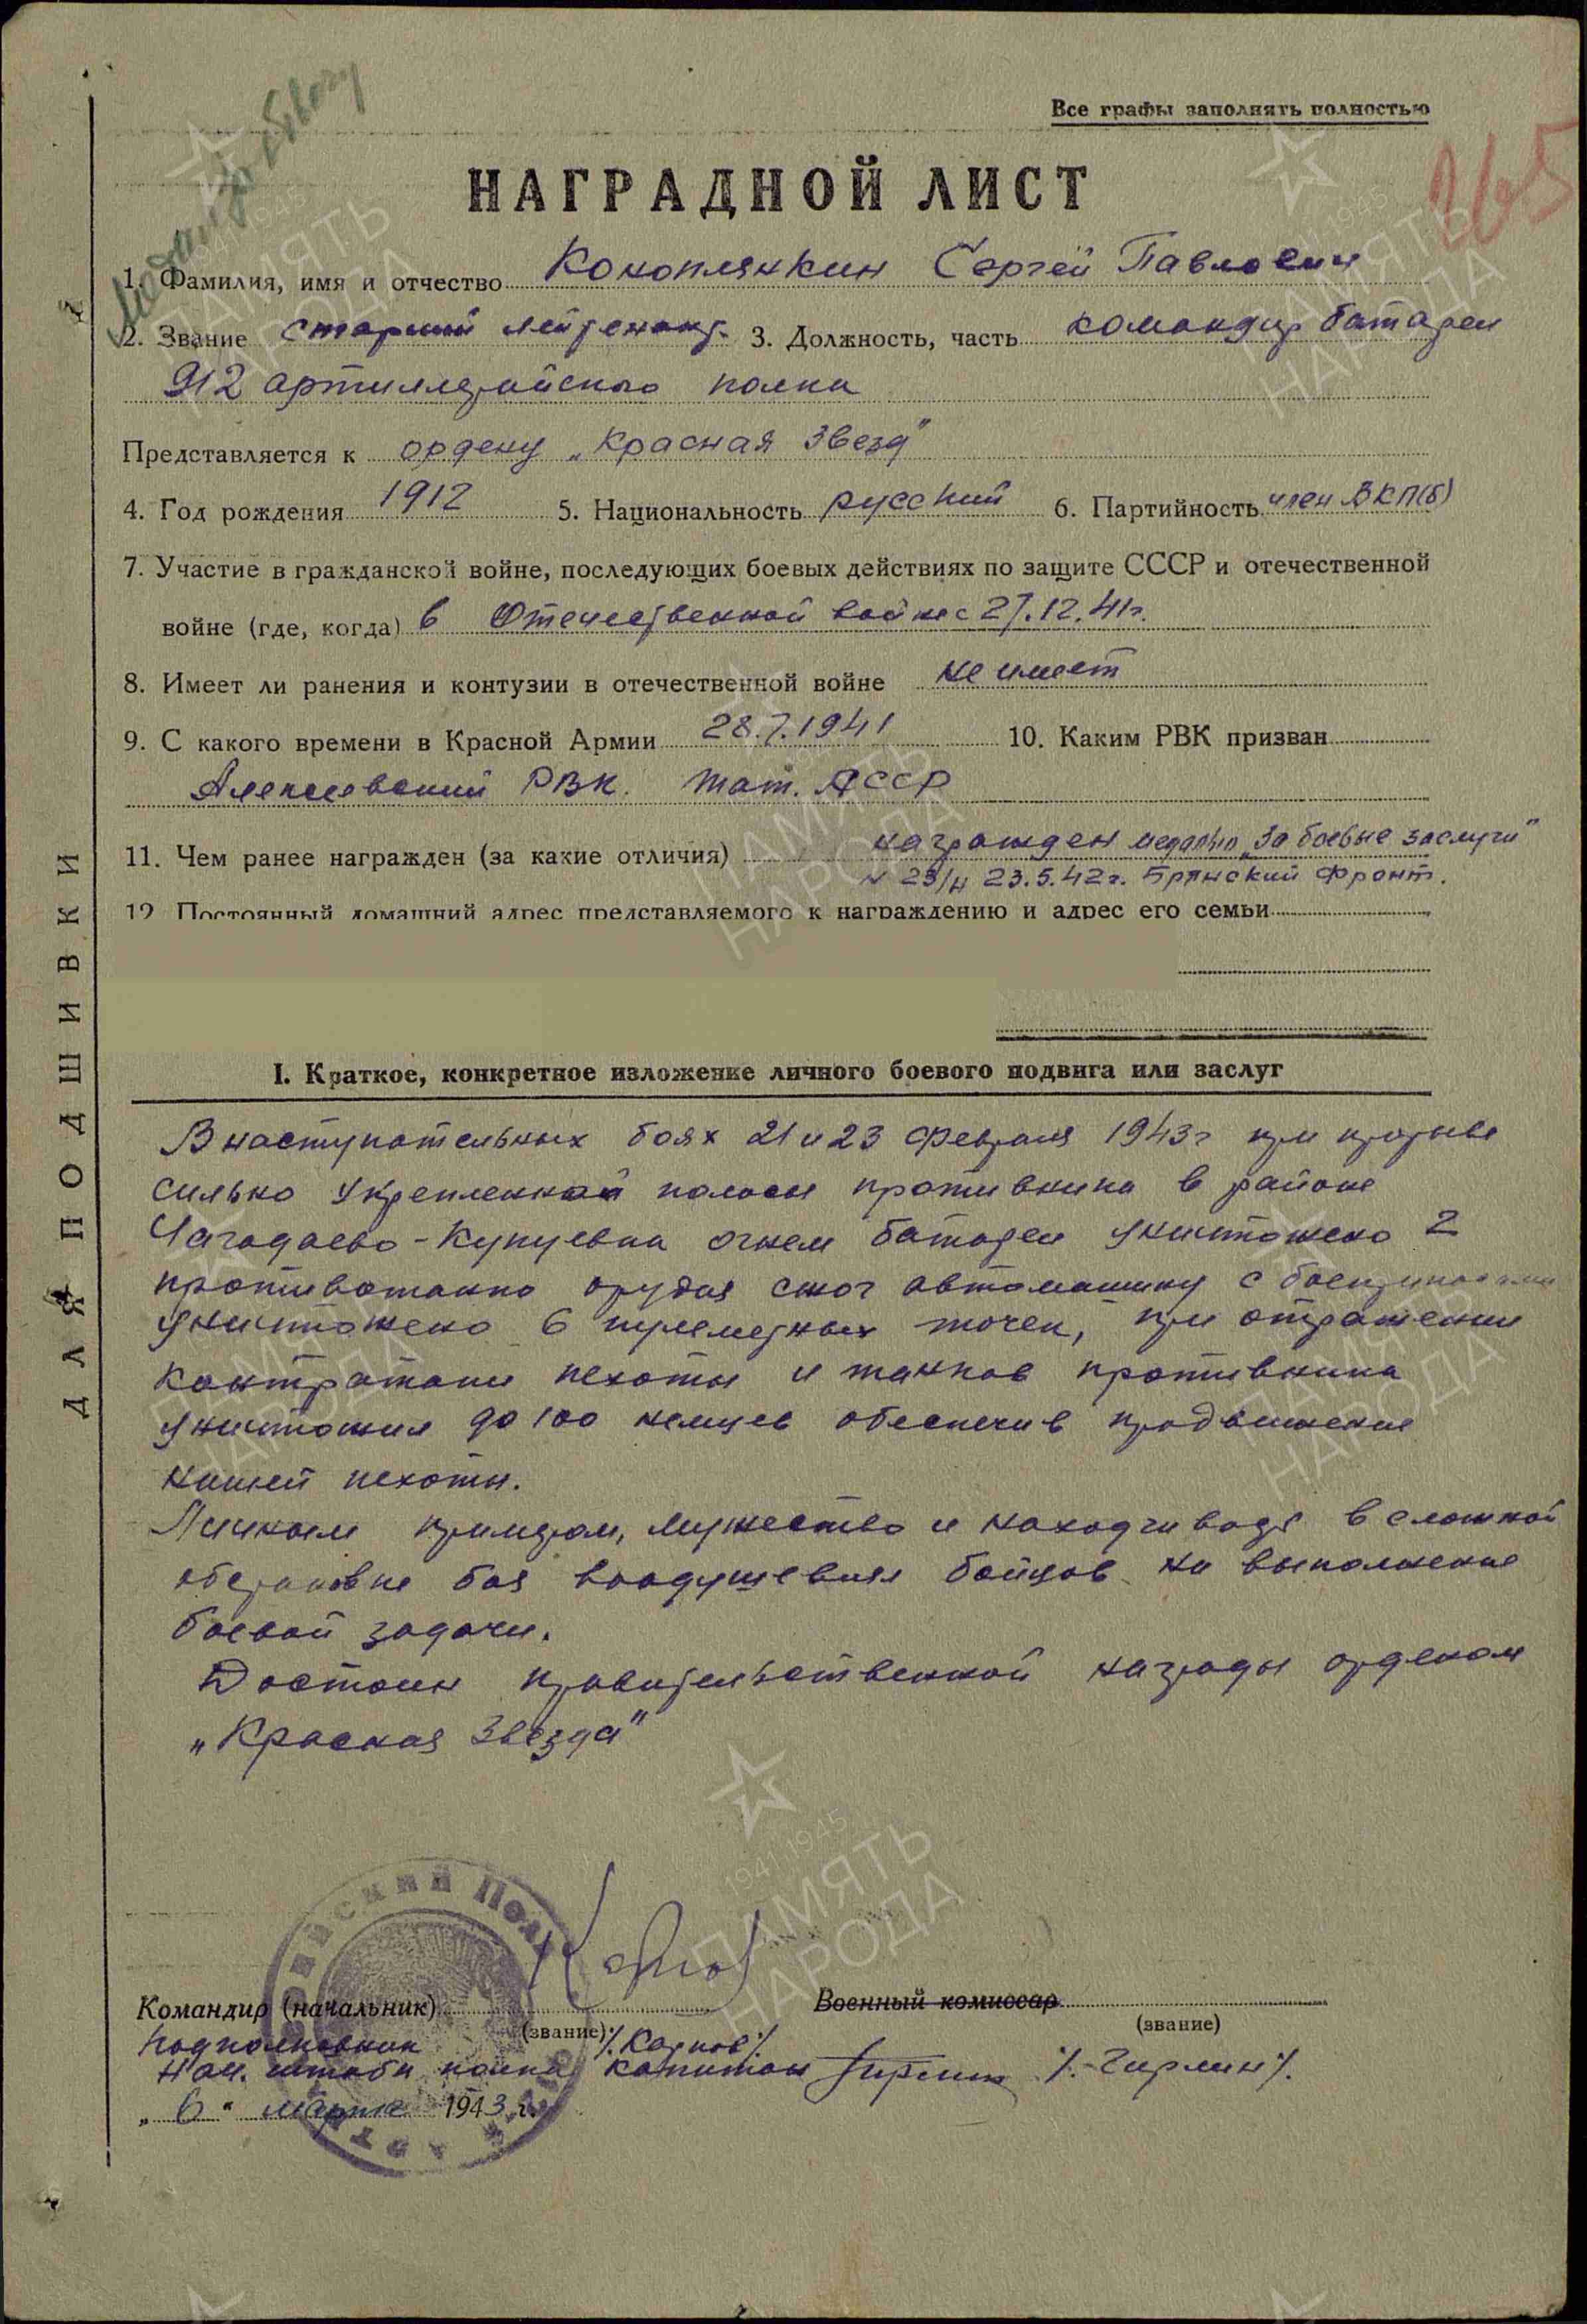 Все графы заполнять полностью
365
НАГРАДНОЙ ЛИСТ
1. Фамилия, имя и отчество Коноплянкин Сергей Павлович
2. Звание старший лейтенант 3. Должность, часть командир батареи
912 артиллерийского полка
Представляется к ордену „Красная Звезд"
4. Год рождения 1912 5. Национальность русский 6. Партийность член ВКП(б)
7. Участие в гражданской войне, последующих боевых действиях по защите СССР и отечественной
войне (где, когда) в Отечественной войне с 27.12.41г.
8. Имеет ли ранения и контузии в отечественной войне не имеет
9. С какого времени в Красной Армии 28.7.1941 10. Каким РВК призван
Алексеевский РВК. Тат. АССР
11. Чем ранее награжден (за какие отличия) награжден медалью „За боевые заслуги"
N 23/н 23.5.42г. Брянский фронт.
12 Постоянный домашний адрес представляемого к награждению и адрес его семьи
I. Краткое, конкретное изложение личного боевого подвига или заслуг
В наступательных боях 21 и 23 февраля 1943г при прорыве
сильно укрепленной полосы противника в районе
Чагадаево-Купуевка огнем батареи уничтожено 2
противотанко орудия сжог автомашину с боеприпасами
уничтожено 6 пулеметных точек, при отражении
контратаки пехоты и танков противника
уничтожил до 100 немцев обеспечив продвижение
нашей пехоты.
Личным примером, мужество и находчивостью в сложной
обстановке боя воодушевлял бойцов на выполнение
боевой задачи.
Достоин правительственной награды орденом
„Красная Звезда"
Командир (начальник) Военный комиссар
(звание) (звание)
подполковник /Карпов/
Нач. штаба полка капитан /Гирлин/.
„6" марта 1943 г.
ДЛЯ ПОДШИВКИ
1941 1945
ПАМЯТЬ
НАРОДА